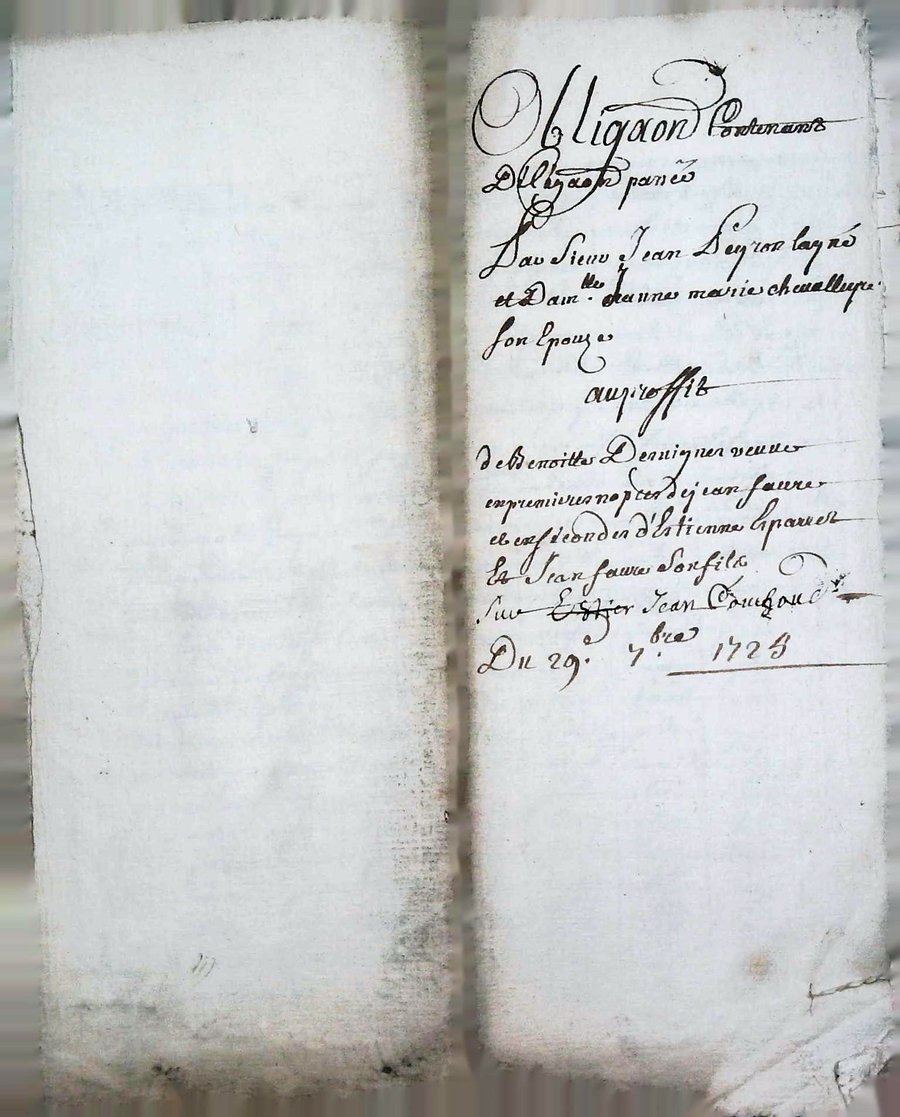 Obligaon Contenant
Delegaon passée
Par Sieur Jean Peyron layné
et Dam.lle Jeanne marie chevalleyre
son Epouze
au proffit
de Benoitte Dervignes veuve
en premieres nopces de jean faure
et en secondes d'Estienne Eparvet
Et Jean faure son fils
Sur Jean
Du 29.e 7.bre 1725